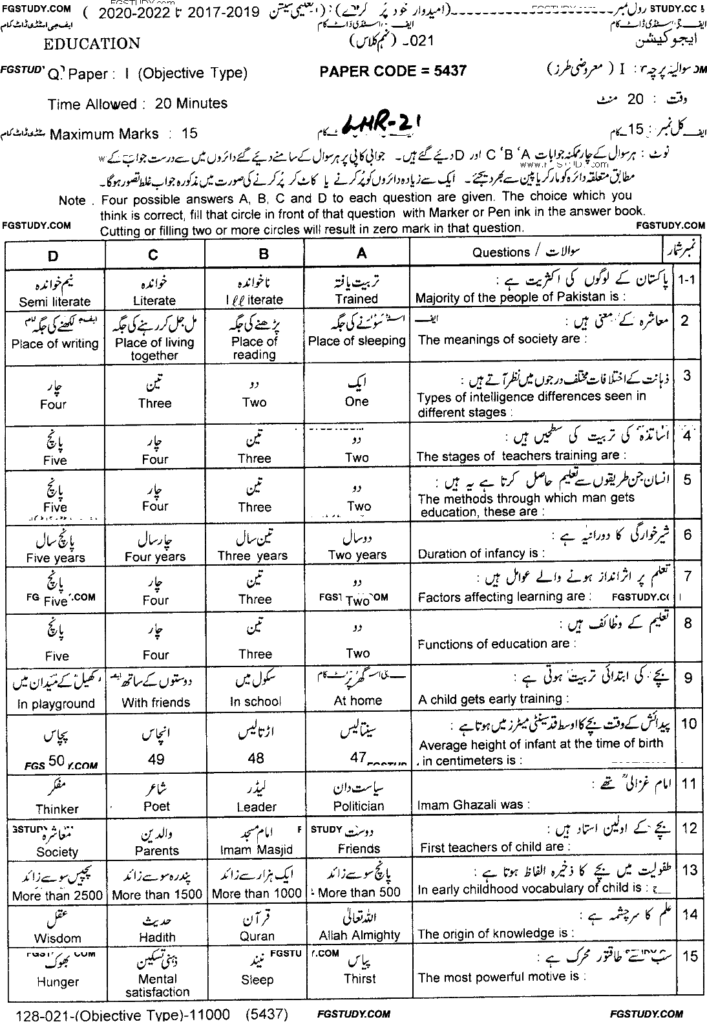 FGSTUDY.COM ( 2020-2022 تا 2017-2019 (تعلیمی سیشن (امیدوار خود پُر کرے) رول نمبر STUDY.CC
EDUCATION 021۔ (نہم کلاس) ایجوکیشن
Q. Paper : I (Objective Type) PAPER CODE = 5437 سوالیہ پرچہ : I ( معروضی طرز )
Time Allowed : 20 Minutes وقت : 20 منٹ
Maximum Marks : 15 LHR-21 کل نمبر : 15
نوٹ : ہر سوال کے چار ممکنہ جوابات A، B، C اور D دیئے گئے ہیں۔ جوابی کاپی پر ہر سوال کے سامنے دیئے گئے دائروں میں سے درست جواب کے
مطابق متعلقہ دائرہ کو مارکر یا پین سے بھر دیجئے۔ ایک سے زیادہ دائروں کو پُر کرنے یا کاٹ کر پُر کرنے کی صورت میں مذکورہ جواب غلط تصور ہوگا۔
Note . Four possible answers A, B, C and D to each question are given. The choice which you
think is correct, fill that circle in front of that question with Marker or Pen ink in the answer book.
FGSTUDY.COM Cutting or filling two or more circles will result in zero mark in that question. FGSTUDY.COM
D C B A Questions / سوالات نمبر شمار
نیم خواندہ خواندہ ناخواندہ تربیت یافتہ پاکستان کے لوگوں کی اکثریت ہے : 1-1
Semi literate Literate Illiterate Trained Majority of the people of Pakistan is :
لکھنے کی جگہ مل جل کر رہنے کی جگہ پڑھنے کی جگہ سونے کی جگہ معاشرہ کے معنی ہیں : 2
Place of writing Place of living together Place of reading Place of sleeping The meanings of society are :
چار تین دو ایک ذہانت کے اختلافات مختلف درجوں میں نظر آتے ہیں : 3
Four Three Two One Types of intelligence differences seen in
different stages :
پانچ چار تین دو اساتذہ کی تربیت کی سطحیں ہیں : 4
Five Four Three Two The stages of teachers training are :
پانچ چار تین دو انسان جن طریقوں سے تعلیم حاصل کرتا ہے یہ ہیں : 5
Five Four Three Two The methods through which man gets
education, these are :
پانچ سال چار سال تین سال دو سال شیرخوارگی کا دورانیہ ہے : 6
Five years Four years Three years Two years Duration of infancy is :
پانچ چار تین دو تعلم پر اثرانداز ہونے والے عوامل ہیں : 7
Five Four Three Two Factors affecting learning are :
پانچ چار تین دو تعلیم کے وظائف ہیں : 8
Five Four Three Two Functions of education are :
کھیل کے میدان میں دوستوں کے ساتھ سکول میں گھر پر بچے کی ابتدائی تربیت ہوتی ہے : 9
In playground With friends In school At home A child gets early training :
پچاس انچاس اڑتالیس سینتالیس پیدائش کے وقت بچے کا اوسط قد سینٹی میٹرز میں ہوتا ہے : 10
50 49 48 47 Average height of infant at the time of birth
in centimeters is :
مفکر شاعر لیڈر سیاست دان امام غزالیؒ تھے : 11
Thinker Poet Leader Politician Imam Ghazali was :
معاشرہ والدین امام مسجد دوست بچے کے اولین استاد ہیں : 12
Society Parents Imam Masjid Friends First teachers of child are :
پچیس سو سے زائد پندرہ سو سے زائد ایک ہزار سے زائد پانچ سو سے زائد طفولیت میں بچے کا ذخیرہ الفاظ ہوتا ہے : 13
More than 2500 More than 1500 More than 1000 More than 500 In early childhood vocabulary of child is :
عقل حدیث قرآن اللہ تعالیٰ علم کا سرچشمہ ہے : 14
Wisdom Hadith Quran Allah Almighty The origin of knowledge is :
بھوک ذہنی تسکین نیند پیاس سب سے طاقتور محرک ہے : 15
Hunger Mental satisfaction Sleep Thirst The most powerful motive is :
128-021-(Objective Type)-11000 (5437) FGSTUDY.COM FGSTUDY.COM